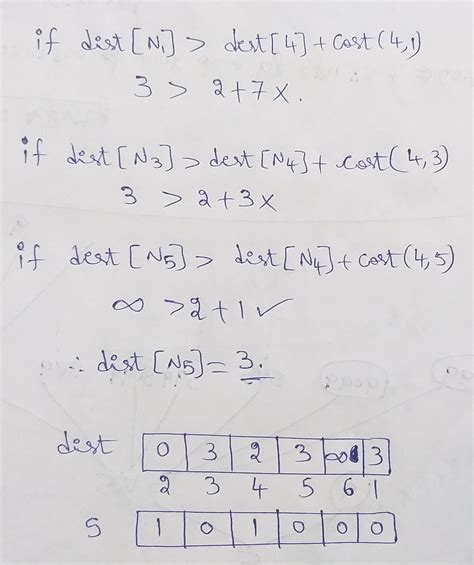 if dist [N1] > dest[4] + cost(4,1)
3 > 2+7 x.
if dist [N3] > dest[N4] + cost(4,3)
3 > 2+3 x
if dest [N5] > dest[N4] + cost(4,5)
∞ > 2+1 ✓
∴ dist [N5] = 3.
dist 0 3 2 3 ∞ 3
2 3 4 5 6 1
S 1 0 1 0 0 0